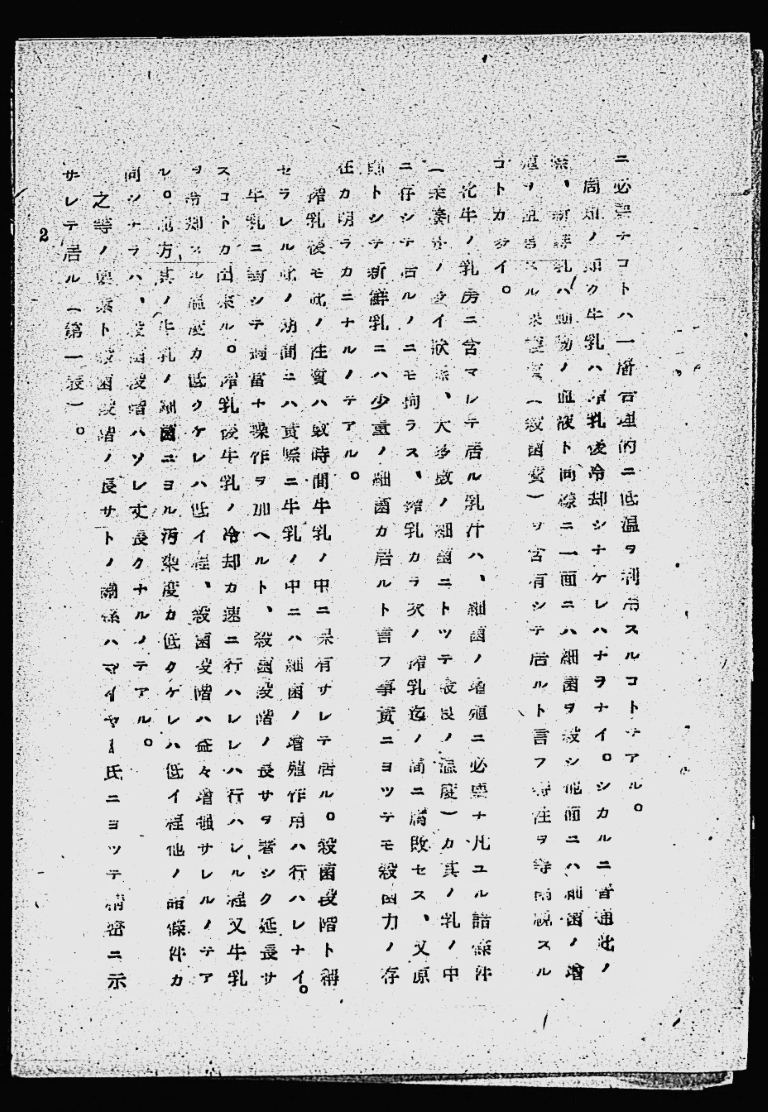 ニ必要ナコトハ一層合理的ニ低温ヲ利用スルコトテアル。
周知ノ如ク牛乳ハ搾乳後冷却シナケレハナラナイ。シカルニ普通此ノ
際、新鮮乳ハ動物ノ血液ト同様ニ一面ニハ細菌ヲ殺シ他面ニハ細菌ノ増
殖ヲ阻害スル 質(殺菌質)ヲ含有シテ居ルト言フ特性ヲ等閑視スル
コトカ多イ。
牝牛ノ乳房ニ含マレテ居ル乳汁ハ、細菌ノ増殖ニ必要ナ凡ユル諸條件
(栄養分ノ イ状態、大多数ノ細菌ニトツテ最良ノ温度)カ其ノ乳ノ中
ニ存シテ居ルノニモ拘ラス、搾乳カラ次ノ搾乳迄ノ間ニ腐敗セス、又原
則トシテ新鮮乳ニハ少量ノ細菌カ居ルト言フ事実ニヨツテモ殺菌力ノ存
在カ明ラカニナルノテアル。
搾乳後モ此ノ性質ハ数時間牛乳ノ中ニ保有サレテ居ル。殺菌段階ト稱
セラレル此ノ期間ニハ実際ニ牛乳ノ中ニハ細菌ノ増殖作用ハ行ハレナイ。
牛乳ニ対シテ適当ナ操作ヲ加ヘルト、殺菌段階ノ長サヲ著シク延長サ
スコトカ出来ル。搾乳後牛乳ノ冷却カ速ニ行ハレレハ行ハレル程又牛乳
ヲ冷却スル温度カ低クケレハ低イ程、殺菌段階ハ益々増強サレルノテア
ル。他方其ノ牛乳ノ細菌ニヨル汚染度カ低クケレハ低イ程他ノ諸條件カ
同シナラハ、殺菌段階ハソレ丈長クナルノテアル。
之等ノ要素ト殺菌段階ノ長サトノ関係ハマイヤー氏ニヨツテ精密ニ示
サレテ居ル(第一表)。
2